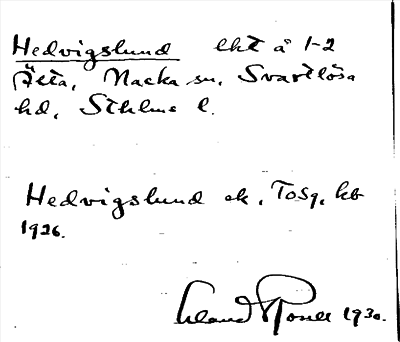 Hedvigslund lht å 1-2
Älta, Nacka sn, Svartlösa
hd, Sthlms l.
Hedvigslund ek, Tosg, kb
1926.
Erland Rosell 1930.